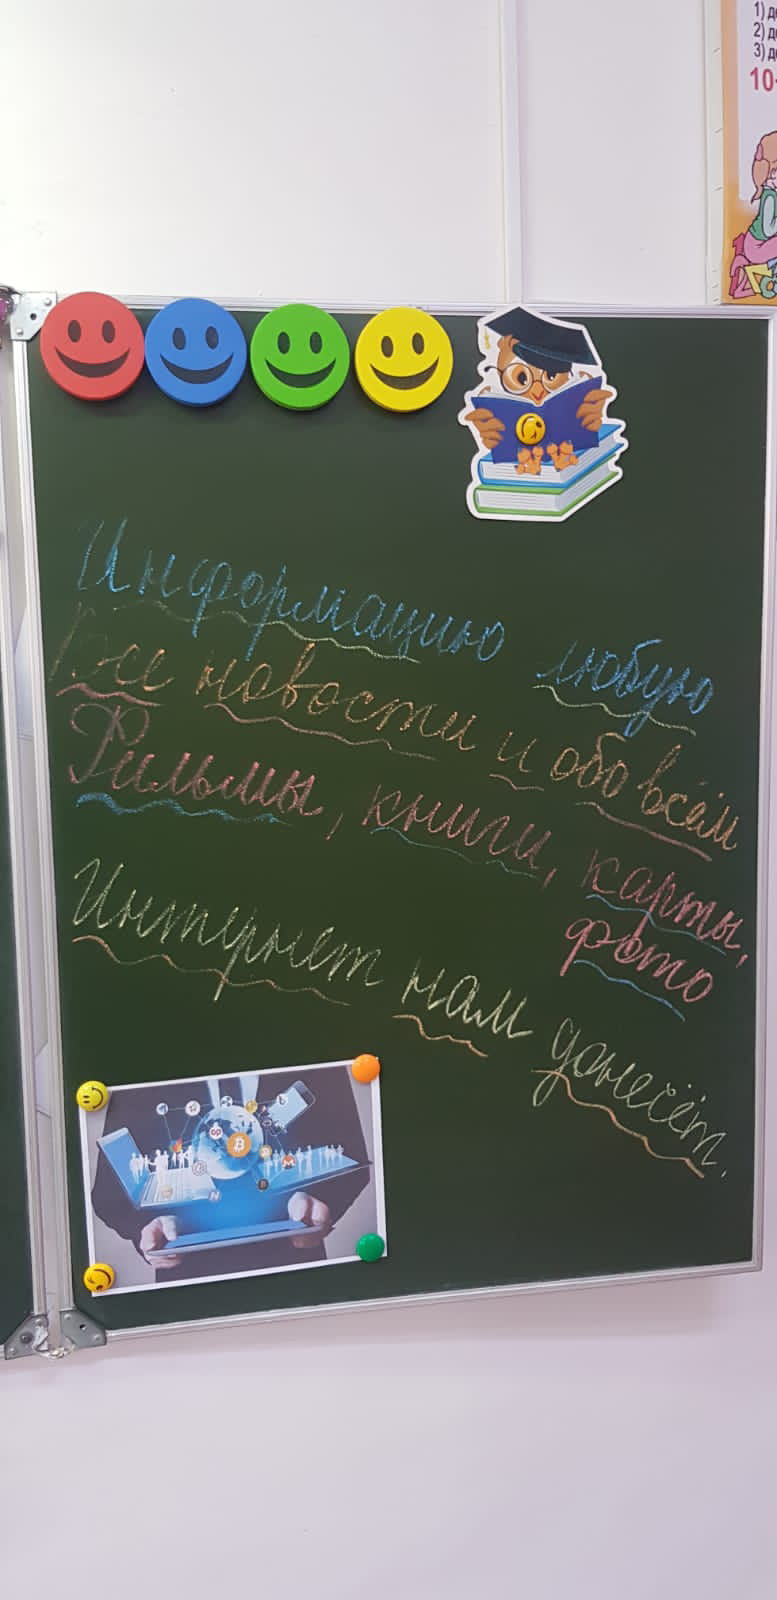 1) де
2) де
3) де
10-
Информацию любую
Все новости и обо всём
Фильмы, книги, карты,
фото
Интернет нам донесёт.